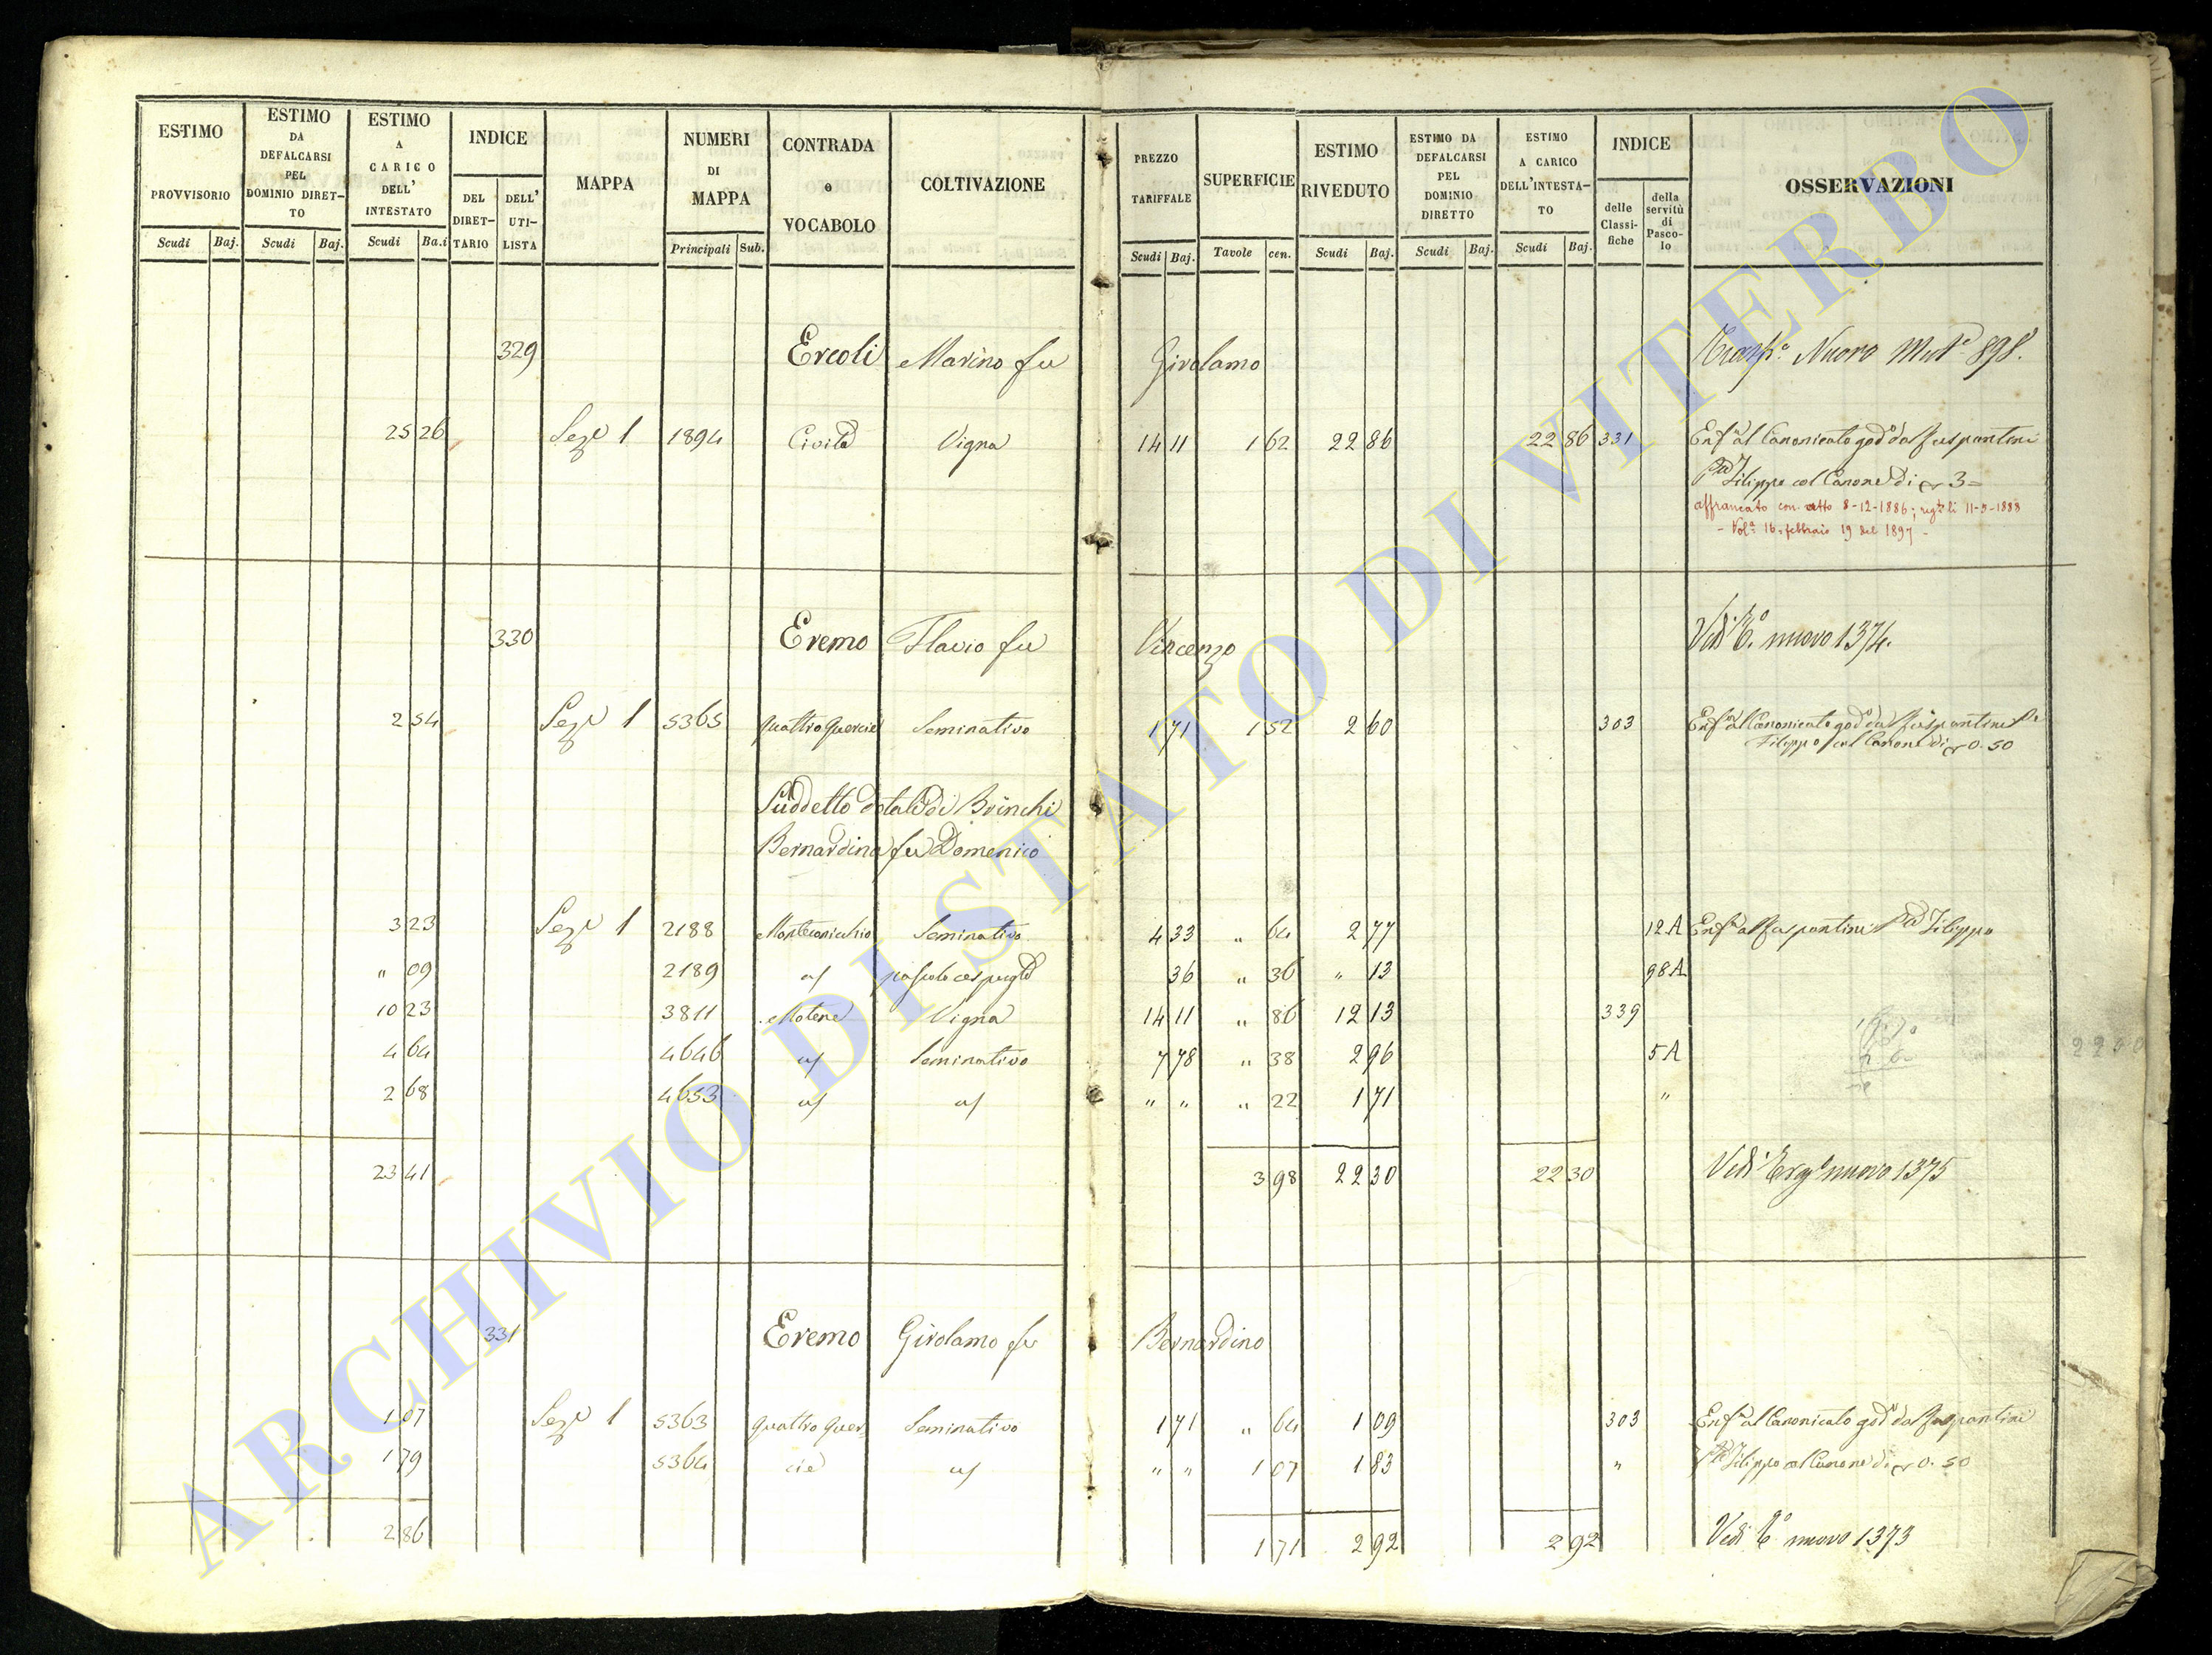 ESTIMO PROVVISORIO Scudi Baj.
ESTIMO DA DEFALCARSI PEL DOMINIO DIRETTO Scudi Baj.
ESTIMO A CARICO DELL' INTESTATO Scudi Ba.i
INDICE DEL DIRETTARIO DELL' UTILISTA
MAPPA
NUMERI DI MAPPA Principali Sub.
CONTRADA o VOCABOLO
COLTIVAZIONE
PREZZO TARIFFALE Scudi Baj.
SUPERFICIE Tavole cen.
ESTIMO RIVEDUTO Scudi Baj.
ESTIMO DA DEFALCARSI PEL DOMINIO DIRETTO Scudi Baj.
ESTIMO A CARICO DELL'INTESTATO Scudi Baj.
INDICE delle Classifiche della servitù di Pascolo
OSSERVAZIONI
329 Ercoli Marino fu Girolamo Nuovo 898.
25 26 Sez.e 1 1894 Civita Vigna 14 11 1 62 22 86 22 86 331 Enf.a al Canonicato god.o da
Filippo col Canone di 3=
affrancato con atto 8-12-1886; li 11-5-1888
- Vol.e 16. febbraio 19 del 1897 -
330 Eremo Flavio fu Vincenzo Vedi E.o nuovo 1374.
2 54 Sez.e 1 5365 quattro quercie Seminativo 1 71 1 52 2 60 303 Enf.a al Canonicato god.o da
Filippo col Canone di 0.50
Suddetto dotale di Brinchi
Bernardina fu Domenico
3 23 Sez.e 1 2188 Seminativo 4 33 " 64 2 77 12 A Enf.a a Filippo
" 09 2189 pascolo cespugl. 36 " 36 " 13 98 A
10 23 3811 Vigna 14 11 " 86 12 13 339
4 64 4646 Seminativo 7 78 " 38 2 96 5 A
2 68 4653 " " " 22 1 71 "
23 41 3 98 22 30 22 30 Vedi nuovo 1375
2230
331 Eremo Girolamo fu Bernardino
1 07 Sez.e 1 5363 quattro quer- Seminativo 1 71 " 64 1 09 303 Enf.a al Canonicato god.o da
1 79 5364 cie " " 1 07 1 83 " Filippo col Canone di 0.50
2 86 1 71 2 92 2 92 Vedi E.o nuovo 1373
ARCHIVIO DI STATO DI VITERBO